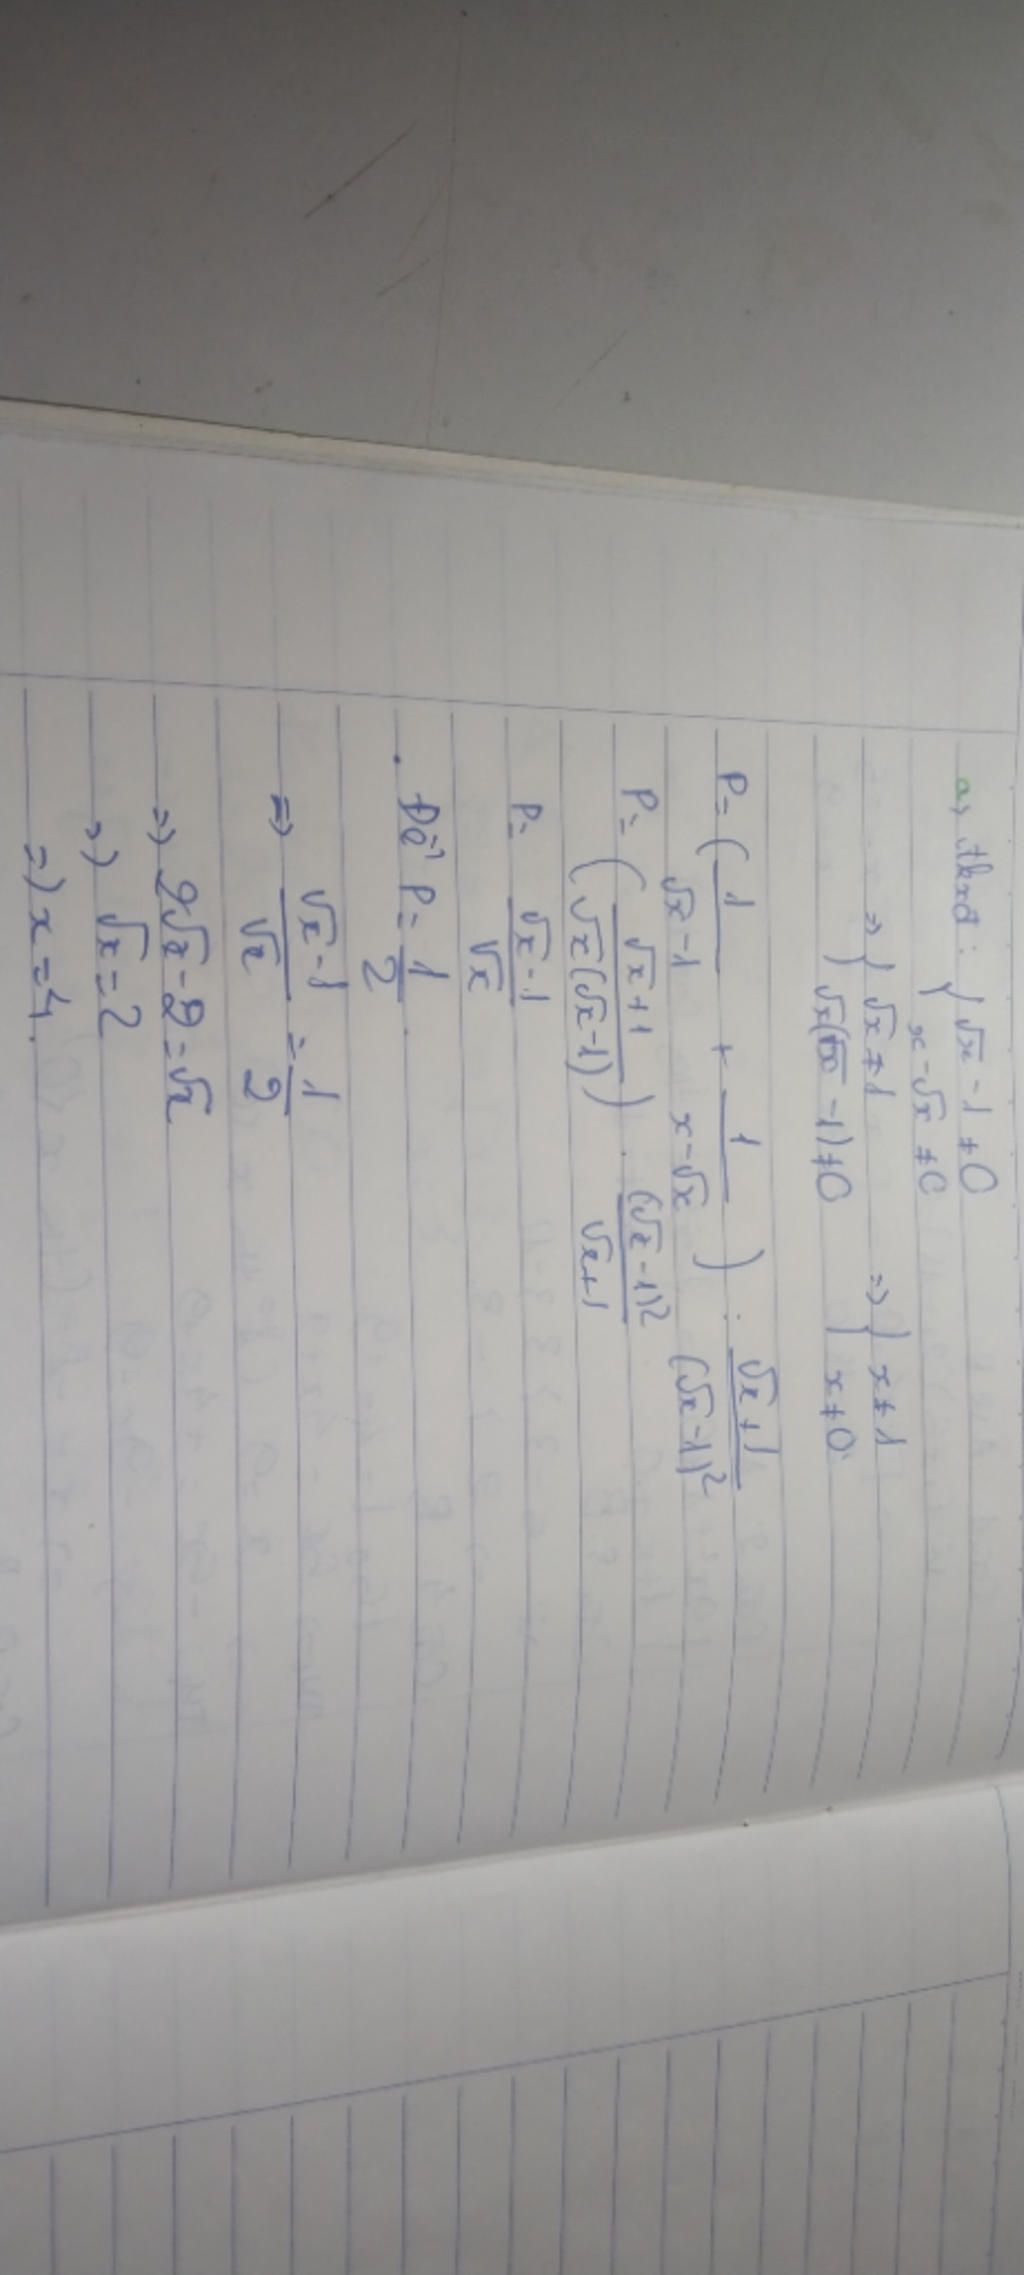 a) đkxđ: { √x - 1 ≠ 0
{ x - √x ≠ 0
=> { √x ≠ 1 => { x ≠ 1
{ √x(√x - 1) ≠ 0 { x ≠ 0
P = ( 1/(√x - 1) + 1/(x - √x) ) : (√x + 1)/(√x - 1)²
P = ( (√x + 1)/(√x(√x - 1)) ) . (√x - 1)²/(√x + 1)
P = (√x - 1)/√x
. Để P = 1/2.
=> (√x - 1)/√x = 1/2
=> 2√x - 2 = √x
=> √x = 2
=> x = 4.